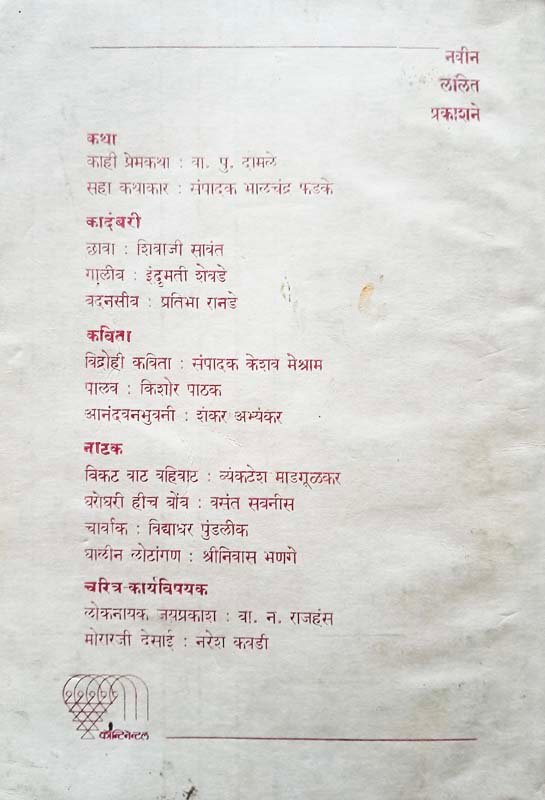 नवीन
ललित
प्रकाशने
कथा
काही प्रेमकथा : वा. पु. दामले
सहा कथाकार : संपादक भालचंद्र फडके
कादंबरी
छावा : शिवाजी सावंत
गालीब : इंदुमती शेवडे
बदनसीब : प्रतिभा रानडे
कविता
विद्रोही कविता : संपादक केशव मेश्राम
पालव : किशोर पाठक
आनंदवनभुवनी : शंकर अभ्यंकर
नाटक
बिकट वाट वहिवाट : व्यंकटेश माडगूळकर
घरोघरी हीच बोंब : वसंत सबनीस
चार्वाक : विद्याधर पुंडलीक
घालीन लोटांगण : श्रीनिवास भणगे
चरित्र-कार्यविषयक
लोकनायक जयप्रकाश : वा. न. राजहंस
मोरारजी देसाई : नरेश कवडी
कॉन्टिनेन्टल